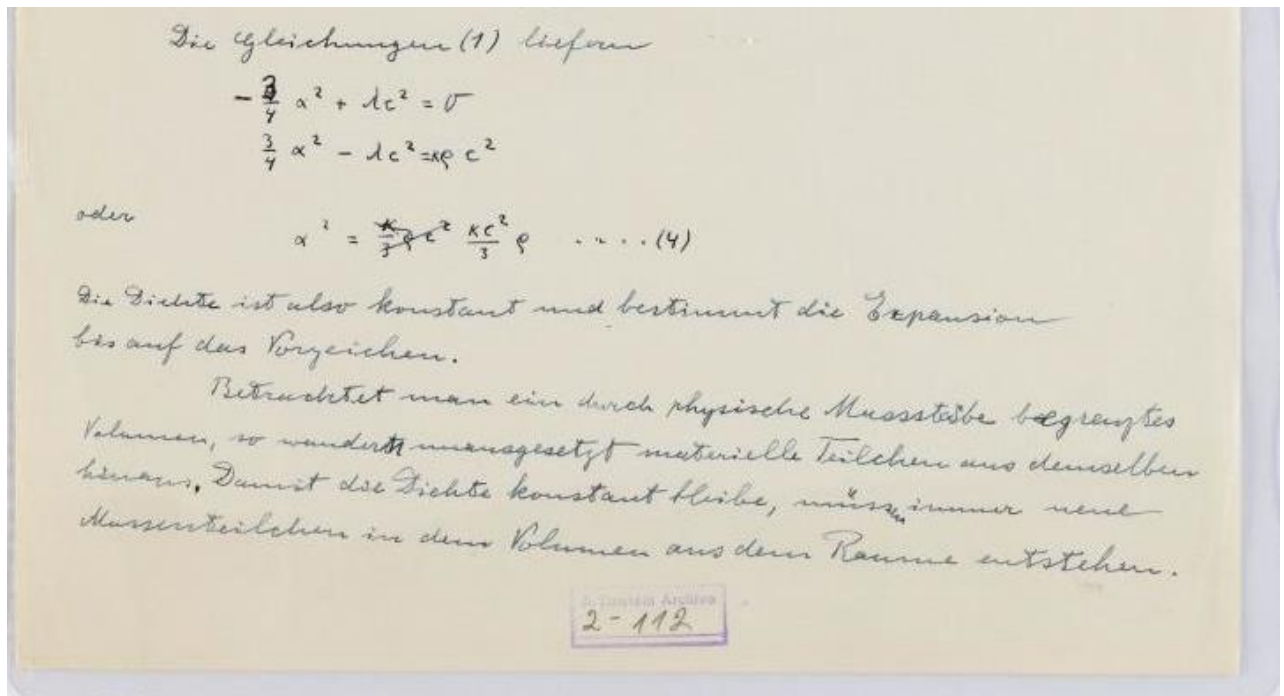 Die Gleichungen (1) liefern
- 3/4 α² + λc² = 0
3/4 α² - λc² = κρ c²
oder
α² = κ/3 ρ c² κc²/3 ρ ..... (4)
Die Dichte ist also konstant und bestimmt die Expansion
bis auf das Vorzeichen.
Betrachtet man ein durch physische Massstäbe begrenztes
Volumen, so wandern unausgesetzt materielle Teilchen aus demselben
hinaus. Damit die Dichte konstant bleibe, müssen immer neue
Massenteilchen in dem Volumen aus dem Raume entstehen.
A. Einstein Archive
2-112